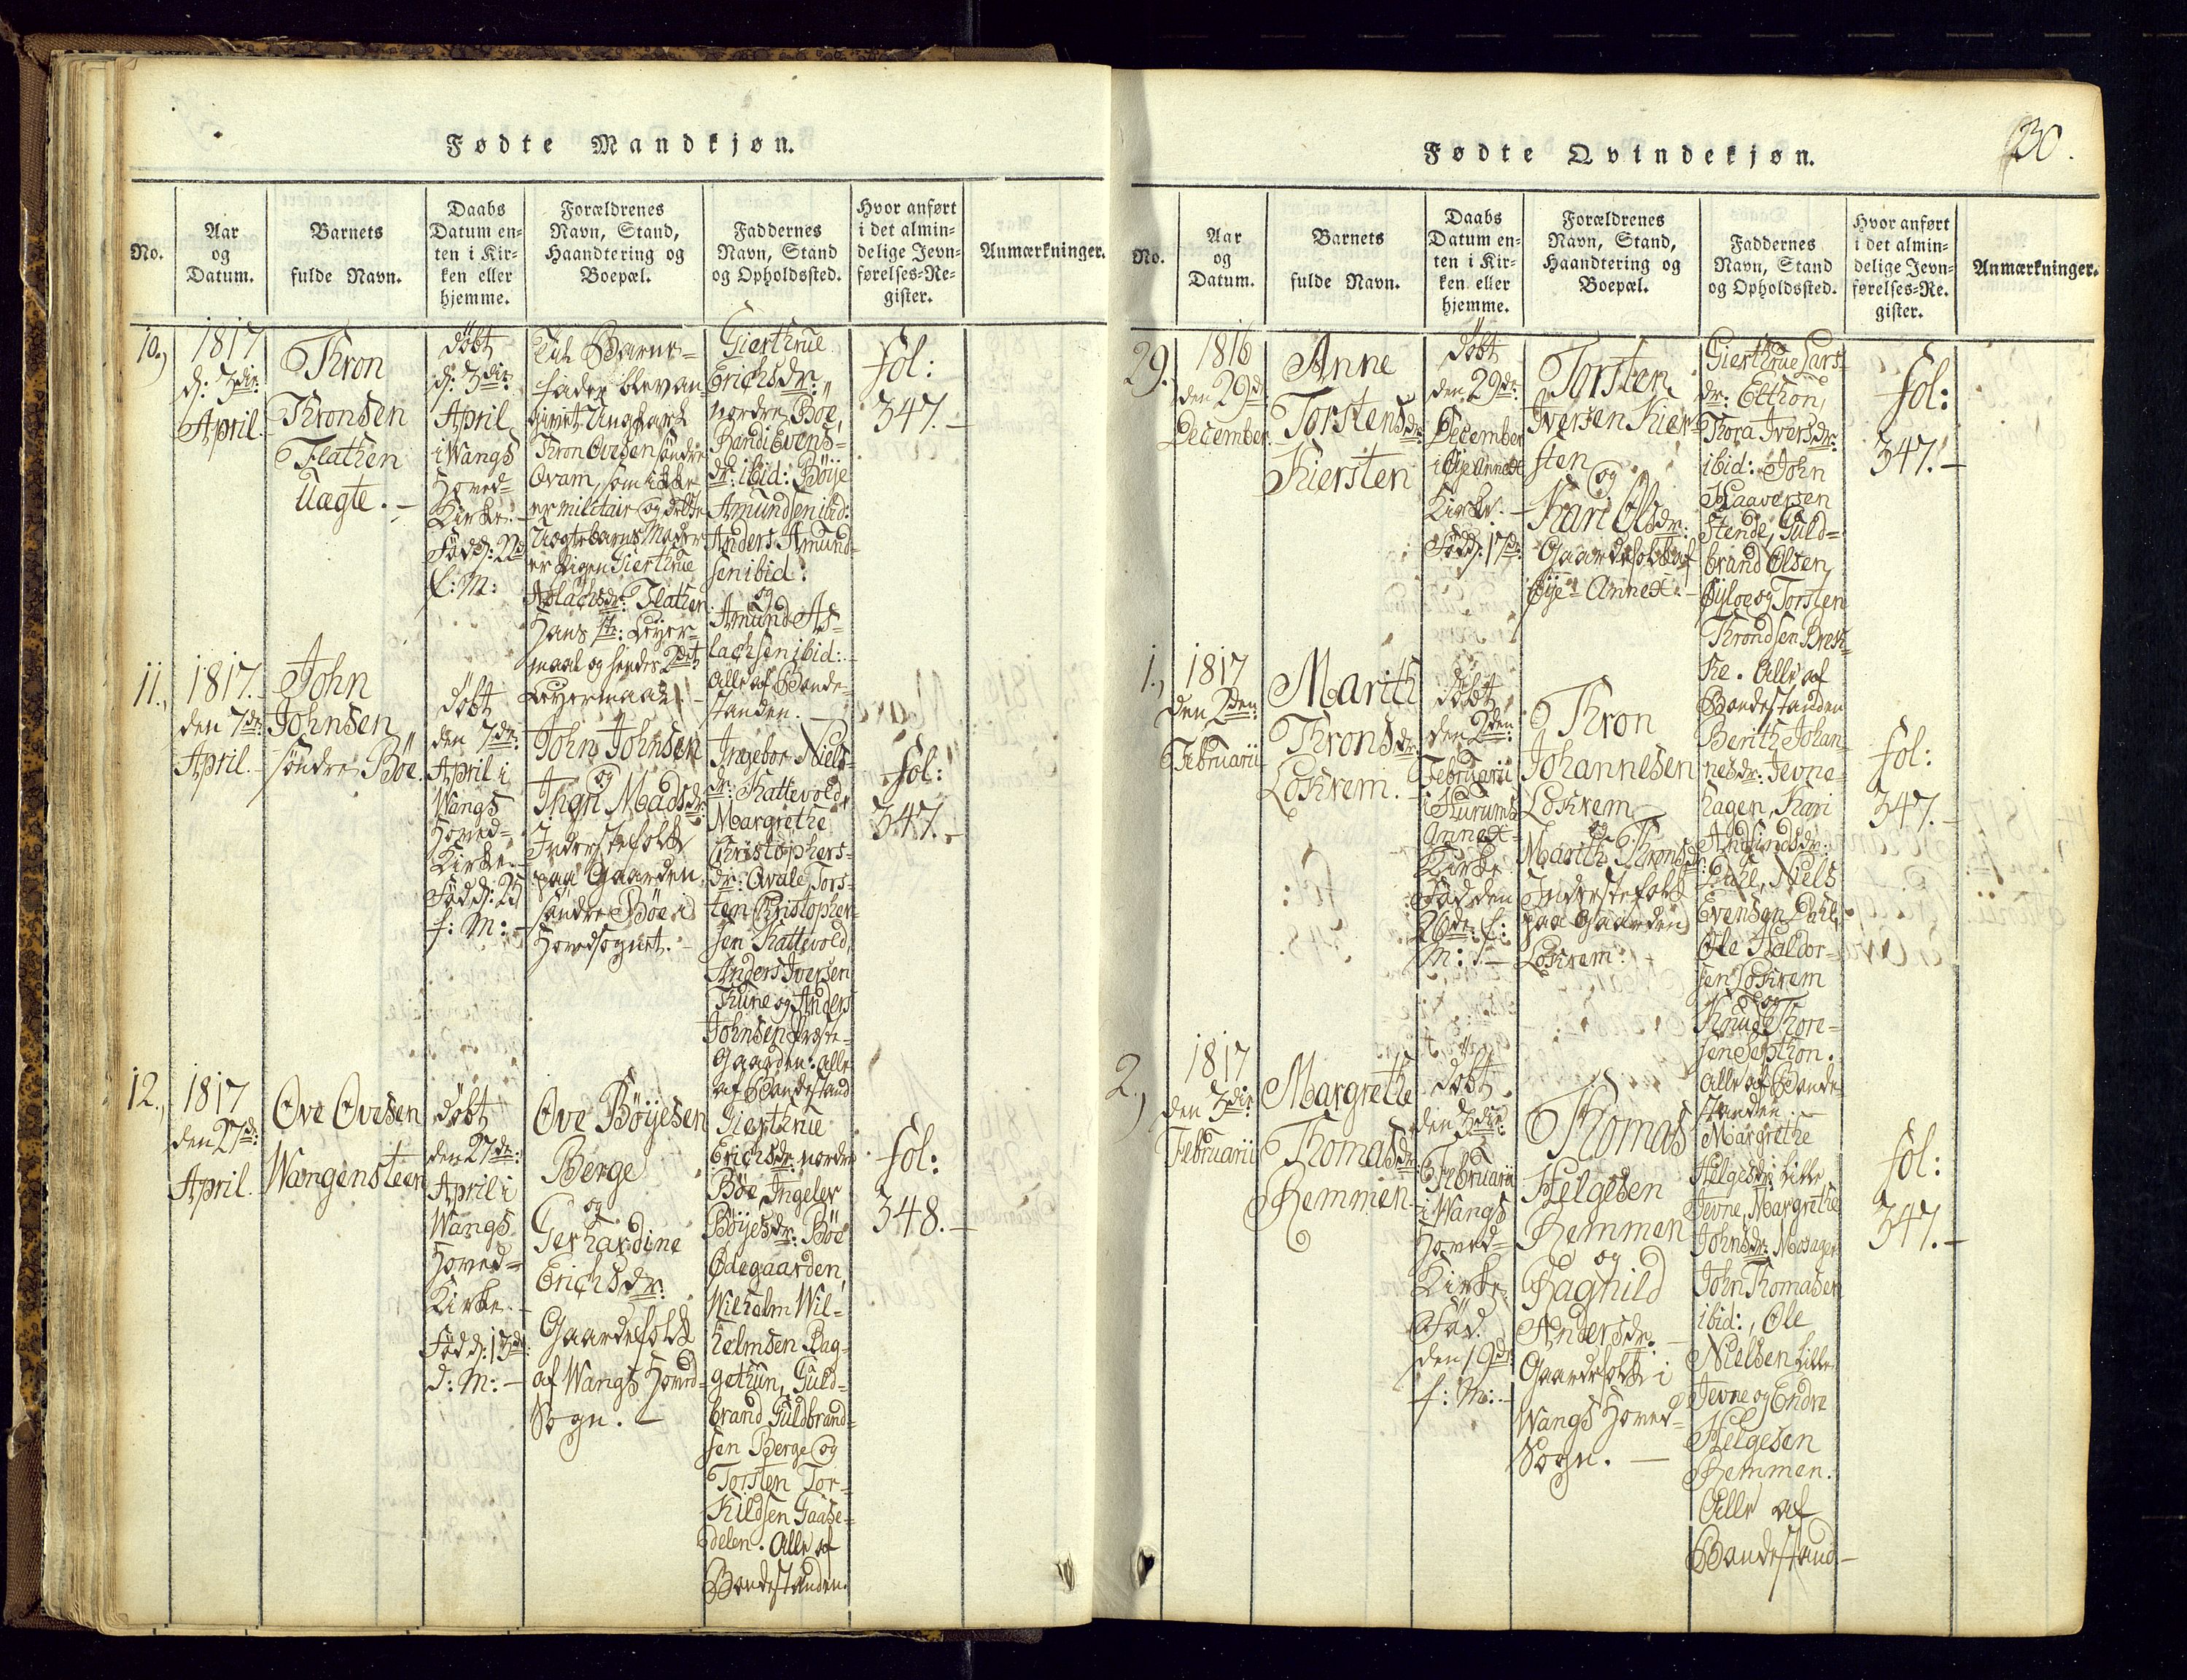 Fødte Mandkjøn.
No.
Aar
og
Datum.
Barnets
fulde Navn.
Daabs
Datum en-
ten i Kir-
ken eller
hjemme.
Forældrenes
Navn, Stand,
Haandtering og
Boepæl.
Faddernes
Navn, Stand
og Opholdssted.
Hvor anført
i det almin-
delige Jevn-
førelses-Re-
gister.
Anmærkninger.
10.,
1817
d: 3die
April.
Thron
Thronsen
Flathen
Uægte. -
døbt
d: 3die
April
i Wangs
Hoved-
Kirke. -
Född: 22d
f: M:
Til Barne-
fader blev an-
givet Ungkarl
Thron Ovesen søndre
Qvam, som ikke
er militair og dette
Uægtebarns Moder
er Pigen Gierthrue
Aslachsdr: Flathen
Hans 1te: Leyer-
maal og hendes 2det
Leyermaal. -
Gierthrue
Erichsdr:
nordre Böe,
Randi Evens-
dr: ibid: Böije
Amundsen ibid:
Anders Amund-
sen ibid:
og
Amund As-
lachsen ibid: -
Alle af Bonde-
standen. -
fol:
347. -
11.,
1817.
den 7de:
April. -
John
Johnsen
söndre Böe.
döbt
den 7de:
April i
Wangs
Hoved-
Kirke. -
Född: 25
f: M: -
John Johnsen
og
Ingri Madsdr:
Inderstefolk
paa Gaarden
söndre Böe i
Hovedsognet. -
Ingebor Niels-
dr: Kattevold,
Margrethe
Christophers-
dr: Qvale, Tors-
ten Christopher-
sen Kattevold,
Anders Iversen
Thune og Anders
Johnsen Præste-
Gaarden. Alle
af Bondestand
fol:
347. -
12.,
1817
den 27de:
April.
Ove Ovesen
Wangensteen
döbt
den 27de:
April i
Wangs
Hoved-
Kirke. -
Född: 13de
d: M: -
Ove Böijesen
Berge
og
Gerhardine
Erichsdr:
Gaardefolk
af Wangs Hoved-
Sogn. -
Gierthrue
Erichsdr: nordre
Böe, Ingelev
Böijesdr: Böe
Ödegaarden,
Wilhelm Wil-
helmsen Bag-
gethun, Guld-
brand Guldbrand-
sen Berge og
Torsten Tor-
kildsen Gaase-
delen. Alle af
Bondestanden.
fol:
348. -
Fødte Qvindekjøn.
30.
No.
Aar
og
Datum.
Barnets
fulde Navn.
Daabs
Datum en-
ten i Kir-
ken eller
hjemme.
Forældrenes
Navn, Stand,
Haandtering og
Boepæl.
Faddernes
Navn, Stand
og Opholdssted.
Hvor anført
i det almin-
delige Jevn-
førelses-Re-
gister.
Anmærkninger.
29.
1816
den 29de
December.
Anne
Torstensdr:
Kiersten
döbt
den 29de:
December
i Öye Annext
Kirke. -
Född: 17de:
Torsten
Iversen Kier-
sten
og
Kari Olsdr:
Gaardefolk af
Öye Annext. -
Gierthrue Lars-
dr: Etthon,
Thora Iversdr:
ibid: John
Haaversen
Stende, Guld-
brand Olsen
Öyloe og Torsten
Throndsen Bræk-
ke. Alle af
Bondestanden
fol:
347. -
1.,
1817
den 2den:
Februarii
Marith
Thronsdr:
Loskrem. -
döbt
den 2den:
Februarii
i Hurums
Annext-
Kirke
Född den
26de: f:
M: -
Thron
Johannesen
Loskrem
og
Marith Thronsdr:
Inderstefolk
paa Gaarden
Loskrem.
Berith Johan-
nesdr: Jevne-
hagen, Kari
Amundsdr:
Dahl, Niels
Evensen Dahl,
Ole Haldor-
sen Loskrem
og
Knud Thore-
sen Septhon.
Alle af Bonde-
standen. -
fol:
347. -
2.,
1817
den 3die
Februarii
Margrethe
Thomasdr:
Remmen
döbt
den 3die:
Februarii
i Wangs
Hoved-
Kirke
Föd
den 19de
f: M: -
Thomas
Helgesen
Remmen
og
Ragnild
Andersdr: -
Gaardefolk i
Wangs Hoved-
Sogn. -
Margrethe
Helgesdr: Lille
Jevne, Margrethe
Johnsdr: Mosager
John Thomasen
ibid:, Ole
Nielsen Lille-
Jevne og Endre
Helgesen
Remmen.
Alle af
Bondestand -
fol:
347. -